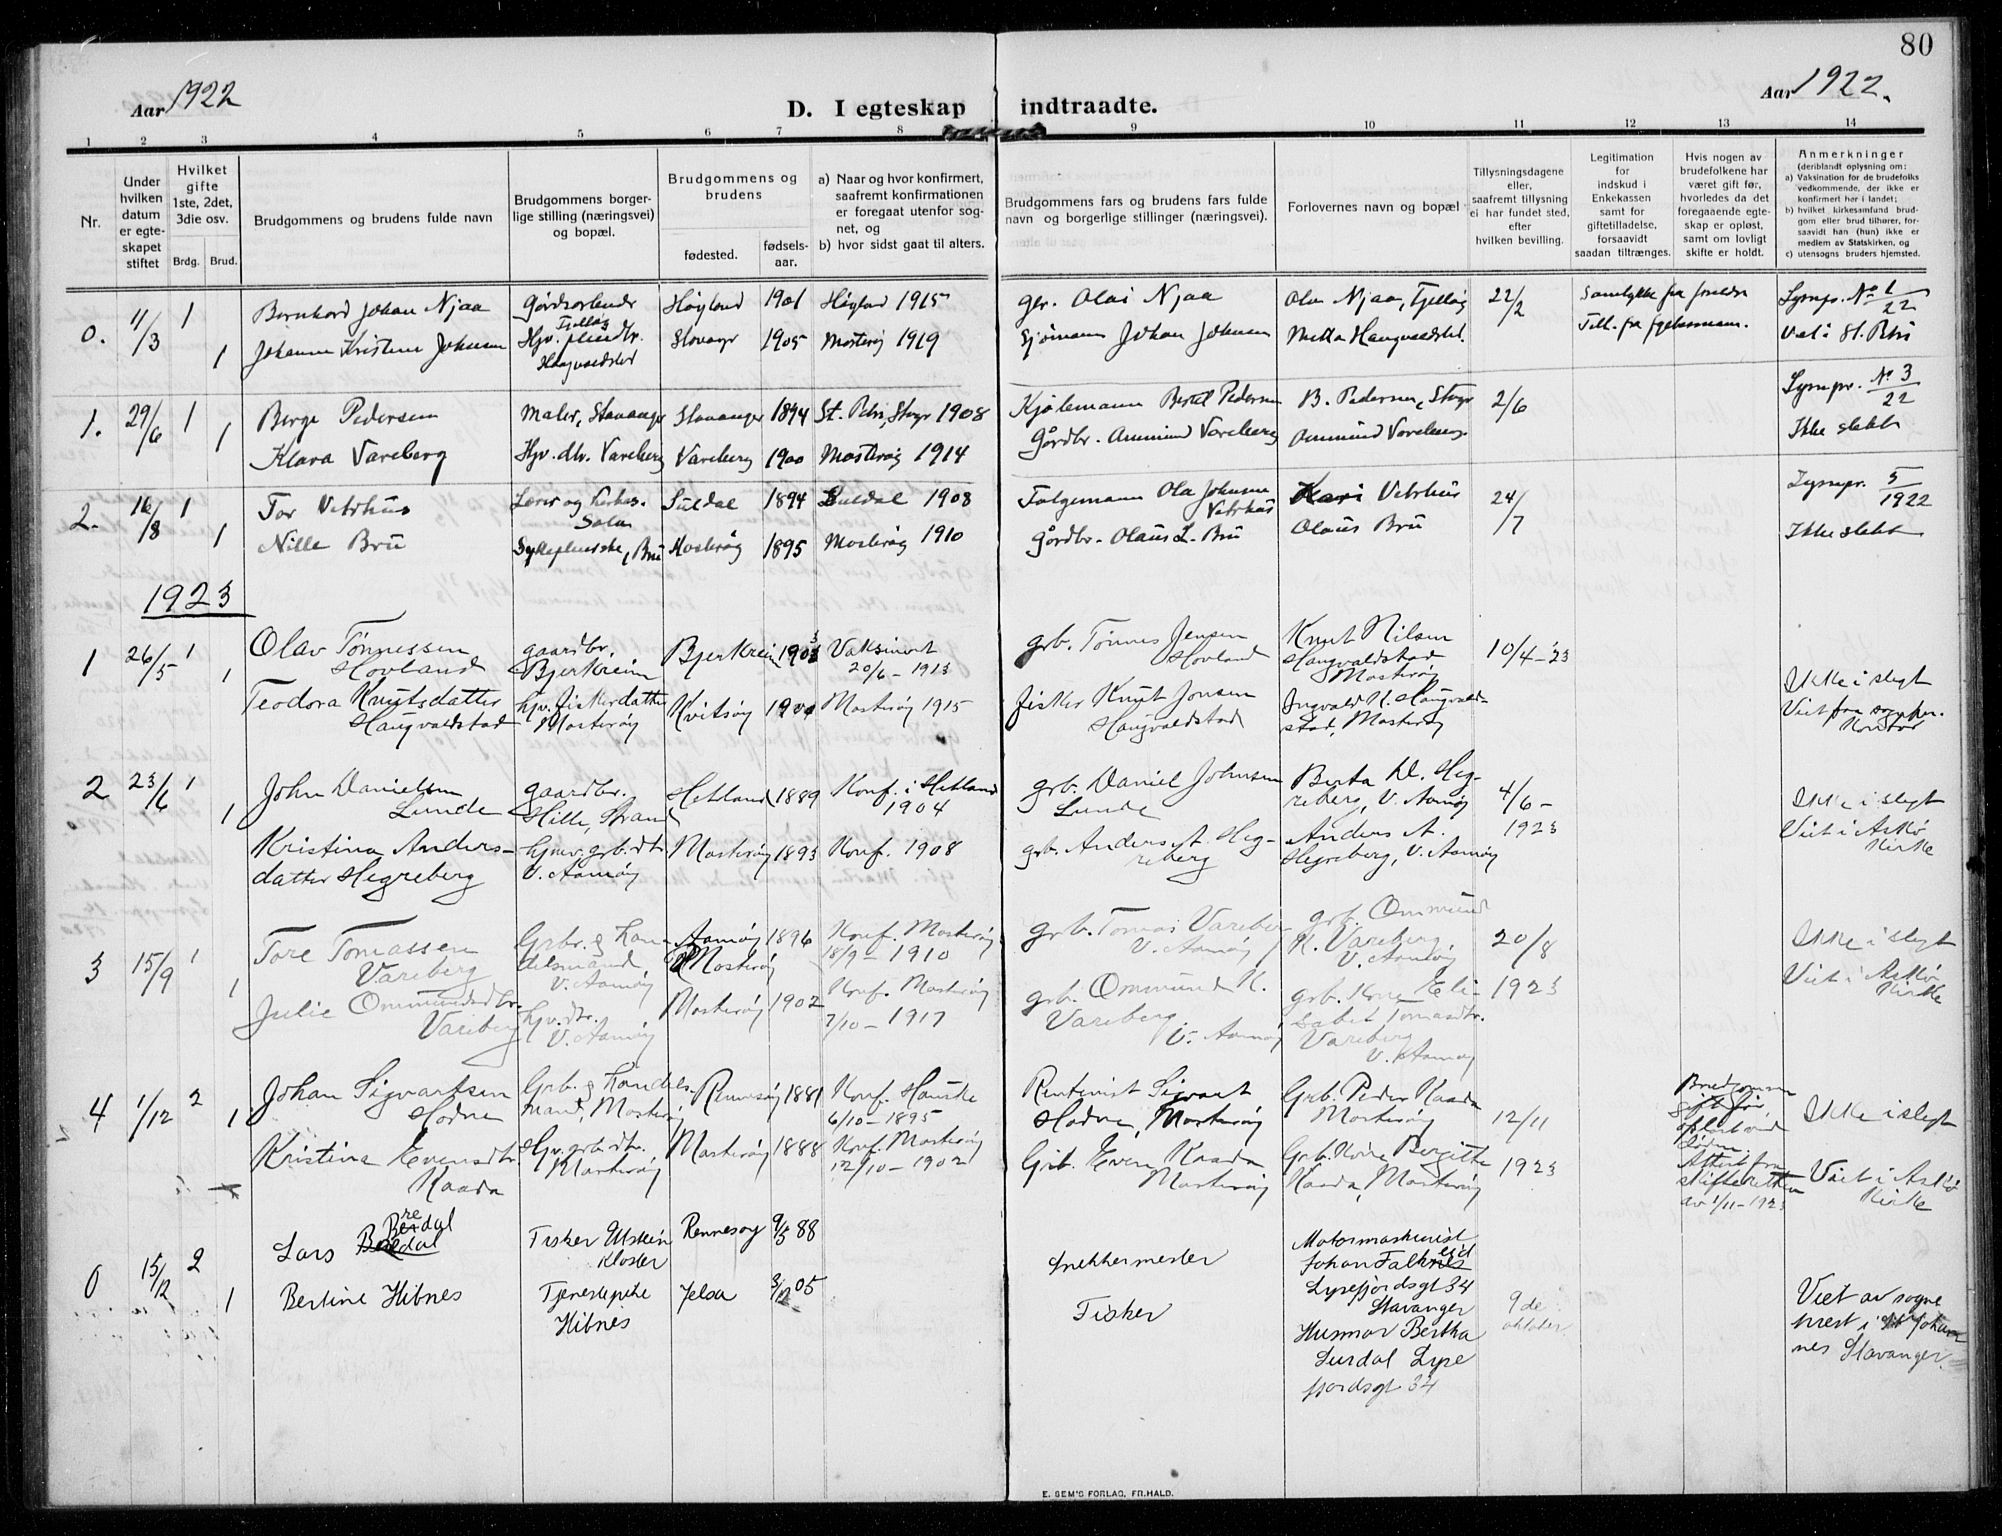 80
Aar 1922
D. I egteskap indtraadte.
Aar 1922.
1 2 3 4 5 6 7 8 9 10 11 12 13 14
Nr.
Under hvilken datum er egte-skapet stiftet
Hvilket gifte 1ste, 2det, 3die osv.
Brdg. Brud.
Brudgommens og brudens fulde navn
Brudgommens borger-lige stilling (næringsvei) og bopæl.
Brudgommens og brudens
fødested.
fødsels-aar.
a) Naar og hvor konfirmert, saafremt konfirmationen er foregaat utenfor sog-net, og
b) hvor sidst gaat til alters.
Brudgommens fars og brudens fars fulde navn og borgerlige stillinger (næringsvei).
Forlovernes navn og bopæl
Tillysningsdagene eller, saafremt tillysning ei har fundet sted, efter hvilken bevilling.
Legitimation for indskud i Enkekassen samt for giftetilladelse, forsaavidt saadan tiltrænges.
Hvis nogen av brudefolkene har været gift før, hvorledes da det foregaaende egte-skap er opløst, samt om lovligt skifte er holdt.
Anmerkninger
(deriblandt oplysning om:
a) Vaksination for de brudefolks vedkommende, der ikke er konfirmert her i landet;
b) hvilket kirkesamfund brud-gom eller brud tilhører, for-saavidt han (hun) ikke er medlem av Statskirken, og
c) utensogns bruders hjemsted.
0. 11/3 1 Bernhard Johan Njaa Høyland 1901 Høyland 1915 Olai Njaa 22/2
1 Johanne Kristine Johnsen 1905 Mosterøy 1919 Sjømann Johan Johnsen
1. 29/6 1 Berge Pedersen Maler, Stavanger Stavanger 1894 St. Petri, Stvgr 1908 Bertel Pedersen B. Pedersen, Stvgr 2/6 Nº 3/22
1 Klara Vareberg Hjv. dtr. Vareberg Vareberg 1900 Mosterøy 1914 Gårdbr. Ommund Vareberg Ommund Vareberg Ikke slekt
2. 16/8 1 Tor Vetrhus Suldal 1894 Suldal 1908 Ola Johnsen Vetrhus Kari Vetrhus 24/7 5/1922
1 Nille Brü Sykepleierske, Brü Mosterøy 1895 Mosterøy 1910 Gårdbr. Olaus L. Brü Olaus Brü Ikke slekt
1923
1 26/5 1 Olav Tønnessen Hovland gaardbr. Bjerkreim Bjerkreim 1903 Vaksinert 20/6 - 1913 grb. Tønnes Jensen Hovland Knut Nilsen Haugvaldstad Mosterøy 10/4-23
1 Teodora Knutsdatter Haugvaldstad hjv. fiskerdatter Mosterøy Kvitsøy 1900 Mosterøy 1915 fisker Knut Jonsen Haugvaldstad Ingvald K. Haugvald-stad, Mosterøy Ikke i slegt Viet fra sognepr. Kontor
2 23/6 1 John Danielsen Lunde gaardbr. Hille, Strand Hetland 1889 Konf. i Hetland 1904 grb. Daniel Johnsen Lunde Berta D. Heg-reberg, V. Aamøy 4/6 - 1923 Ikke i slegt
1 Kristina Anders-datter Hegreberg hjmv. grb. dtr. V. Aamøy Mosterøy 1893 Konf. 1908 grb. Anders A. Heg-reberg Anders A. Hegreberg, V. Aamøy Viet i Askø Kirke
3 15/9 1 Tore Tomassen Vareberg Grbr. & han-delsmand V. Aamøy Aamøy Mosterøy 1896 Konf. Mosterøy 18/9 - 1910 grb. Tomas Vareberg V. Aamøy grb. Ommund K. Vareberg V. Aamøy 20/8 Ikke i slegt
1 Julie Ommundsdtr. Vareberg hjv. dtr. V. Aamøy Mosterøy 1902 Konf. Mosterøy 7/10 - 1917 grb. Ommund K. Vareberg V. Aamøy grb. Kone Eli-sabet Tomasdtr. Vareberg V. Aamøy 1923 Viet i Askø Kirke
4 1/12 2 Johan Sigvartsen Hodne Grb. & handels-mand, Mosterøy Rennesøy 1881 Konf. Hauske 6/10 - 1895 Rentenist Sigvart Hodne, Mosterøy Grb. Peder Kaada Mosterøy 12/11 Brudgommen gift før, opløst ved døden. Attest fra skifteretten av 1/11-1923 Ikke i slegt
1 Kristina Evensdtr. Kaada Hjv. grb. dtr. Mosterøy Mosterøy 1888 Konf. Mosterøy 12/10 - 1902 Grb. Even Kaada Mosterøy Grb. Kone Bergitte Kaada, Mosterøy 1923 Viet i Askø Kirke
0 15/12 2 Lars Bredal Fisker Utstein Kloster Rennesøy 9/5 88 Snekkermester Motormaskinist Johan Falkeid Lysefjordsgt 34 Stavanger 9de oktober
1 Bertine Hibnes Tjenestepike Hibnes Jelsa 3/12 05 Fisker Husmor Bertha Surdal Lyse fjordsgt 34 Viet av sogne prest i St Johan nes Stavanger.
E. SEM'S FORLAG, FR.HALD.